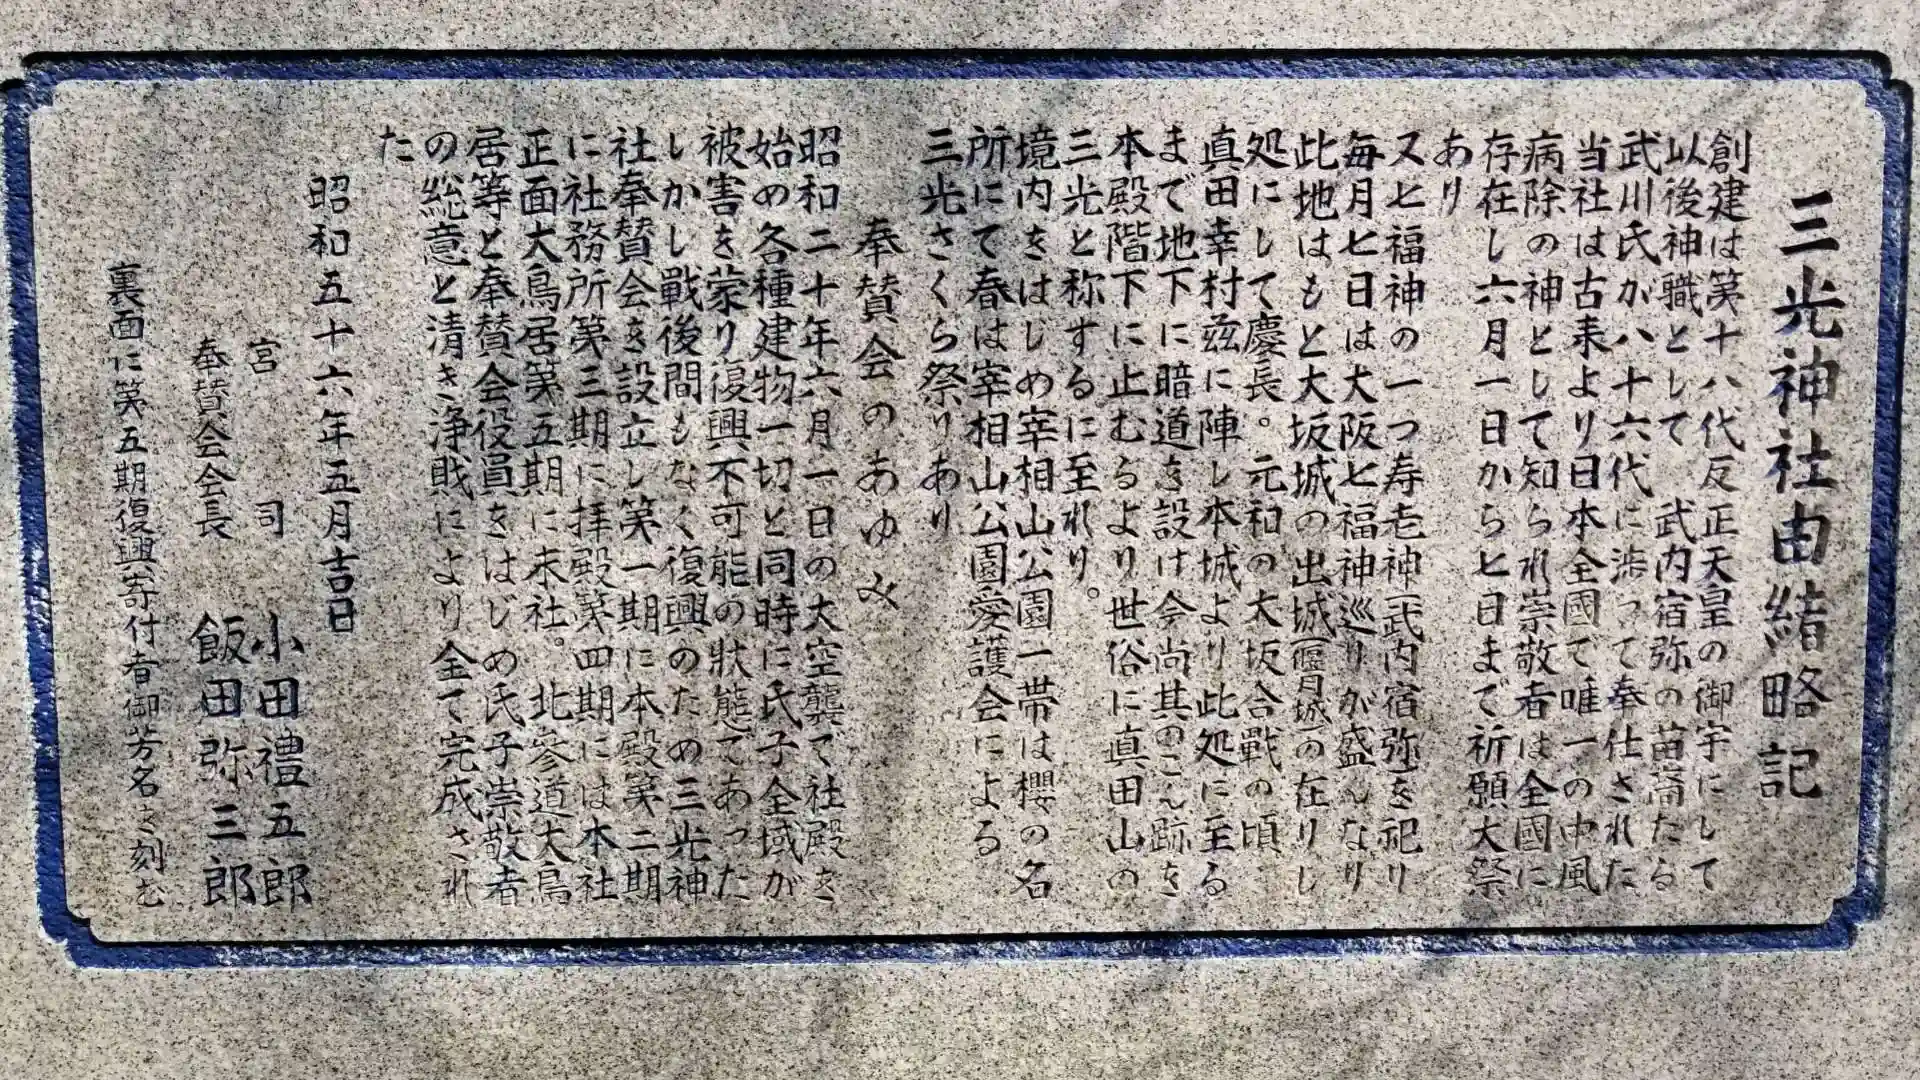 三光神社由緒略記
創建は第十八代反正天皇の御宇にして
以後神職として　武内宿弥の苗裔たる
武川氏が八十六代に渉って奉仕された
当社は古来より日本全國で唯一の中風
病除の神として知られ崇敬者は全國に
存在し六月一日から七日まで祈願大祭
あり
又七福神の一つ寿老神（武内宿弥）を祀り
毎月七日は大阪七福神巡りが盛んなり
此地はもと大坂城の出城（偃月城）の在りし
処にして慶長。元和の大坂合戰の頃
真田幸村茲に陣し本城より此処に至る
まで地下に暗道を設け今尚其のこん跡を
本殿階下に止むるより世俗に真田山の
三光と称するに至れり。
境内をはじめ宰相山公園一帯は櫻の名
所にて春は宰相山公園愛護会による
三光さくら祭りあり
奉賛会のあゆみ
昭和二十年六月一日の大空襲で社殿を
始め各種建物一切と同時に氏子全域が
被害を蒙り復興不可能の状態であった
しかし戦後間もなく復興のため三光神
社奉賛会を設立し第一期に本殿第二期
に社務所第三期に拝殿第四期には本社
正面大鳥居第五期に末社。北参道大鳥
居等と奉賛会役員をはじめ氏子崇敬者
の総意と清き浄財により全て完成され
た
昭和五十六年五月吉日
宮　司　小田禮五郎
奉賛会会長　飯田弥三郎
裏面に第五期復興寄付者御芳名を刻む